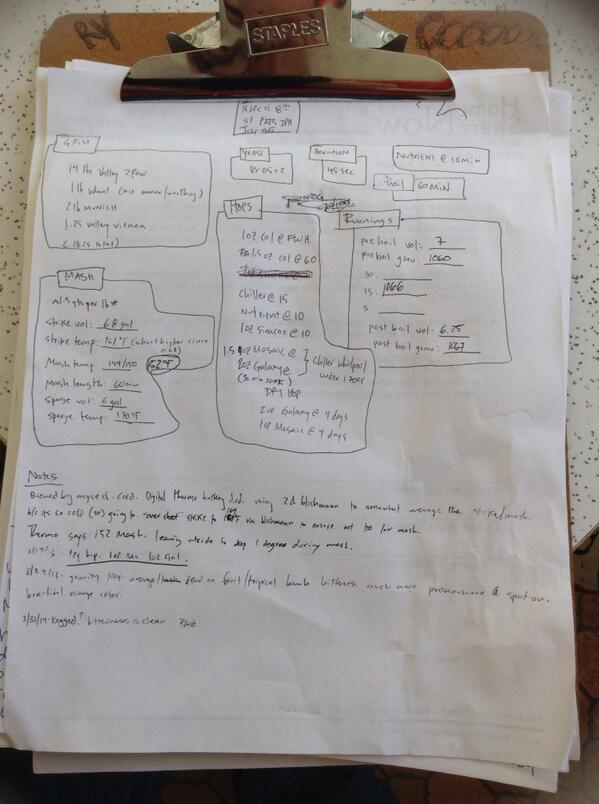 STAPLES
RY
MARCH 8th
St PATS IPA
GRIST
14 lbs Valley 2Row
1 lb wheat
2 lb Munich
1.25 Valley vienna
YEAST
US-05 x 2
AERATION
45 sec
Nutrient @ 10 min
Boil 60 MIN
HOPS
1 oz Col @ FWH
1.5 oz Col @ 60
Chiller @ 15
Nutrient @ 10
1 oz Simcoe @ 10
1.5 oz Mosaic @
2oz Galaxy @
Chiller whirlpool
under 170°F
(30 min soak)
DRY HOP
2oz Galaxy @ 4 days
1oz Mosaic @ 4 days
Runnings
pre boil vol: 7
pre boil grav: 1060
30:
15: 1066
5:
post boil vol: 6.25
post boil grav: 1067
MASH
strike vol: 6.8 gal
strike temp: 161°F
Mash temp 149/150 152°F
Mash length: 60 min
sparge vol: 6 gal
sparge temp: 170°F
Notes
Brewed by myself. Cold. Digital thermo battery died. using 2 Blichmann to somewhat average the strike/mash.
b/c its so cold (30) going to "over shoot" strike to °F via Blichmann to ensure not too low mash.
Thermo says 152 Mash. leaving outside to drop 1 degree during mash.
1oz Mo 1oz Gal.
gravity fruit/tropical bomb bitterness much more pronounced & spot on.
beautiful orange color.
3/31/14 - Kegged. bitterness is clean